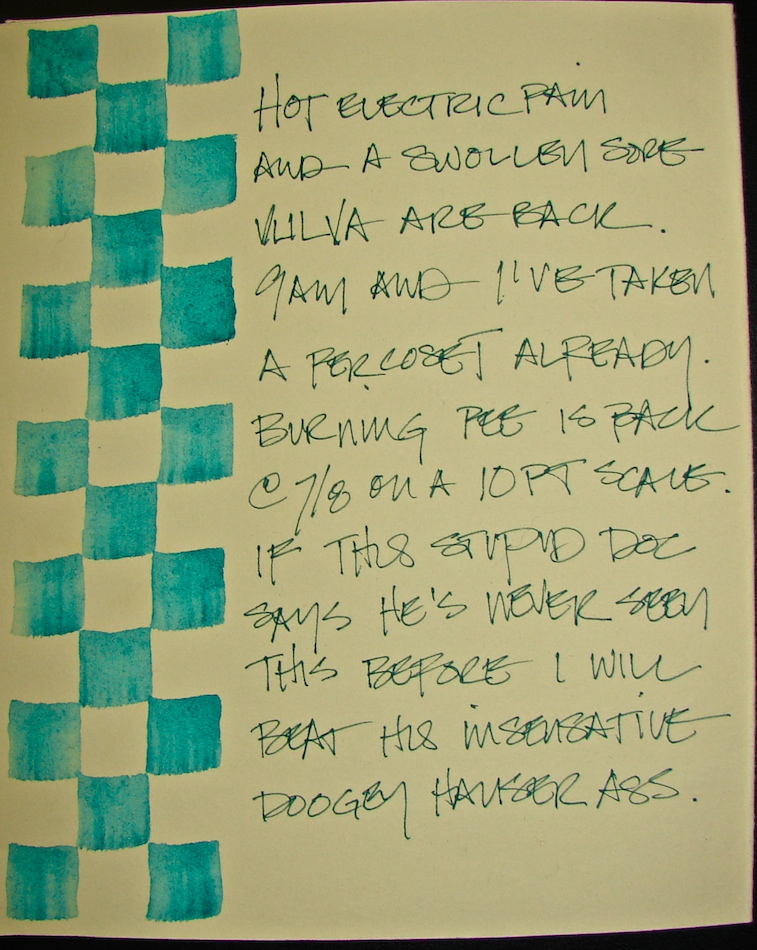 HOT ELECTRIC PAIN
AND A SWOLLEN SORE
VULVA ARE BACK.
9AM AND I'VE TAKEN
A PERCOSET ALREADY.
BURNING PEE IS BACK
@ 7/8 ON A 10 PT SCALE.
IF THIS STUPID DOC
SAYS HE'S NEVER SEEN
THIS BEFORE I WILL
BEAT HIS INSENSATIVE
DOOGEY HAUSER ASS.